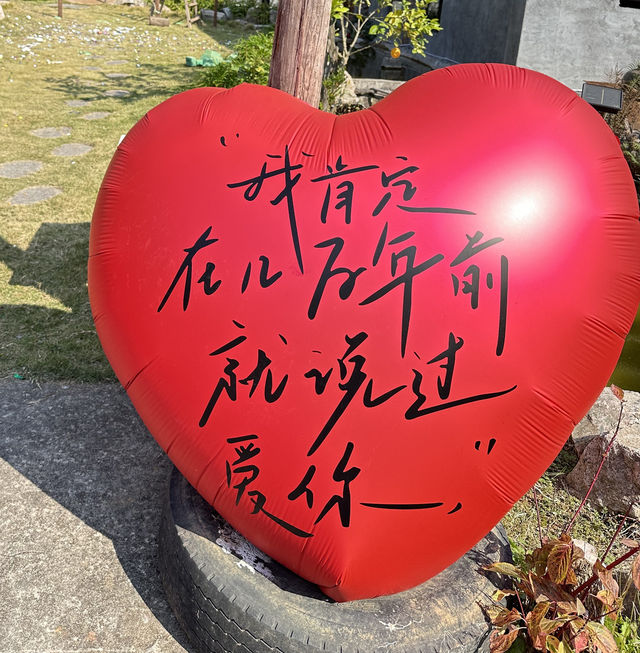 "我肯定
在几百年前
就说过
爱你,"